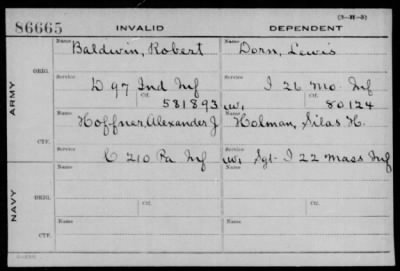 (3-III-5)
86665 INVALID DEPENDENT
Name Baldwin, Robert Name Dorn, Lewis
ORIG.
Service Service
D 97 Ind Inf I 26 Mo. Inf
Ctf. 581893 W, Ctf. 80124
ARMY
Name Hoffner, Alexander J Name Holman, Silas H.
CTF.
Service C 210 Pa Inf Service W, Sgt. I 22 Mass Inf
Name Ctf. Name Ctf.
ORIG.
Service Service
NAVY
Ctf. Ctf.
Name Name
CTF.